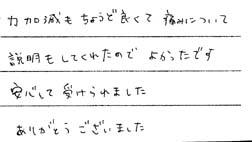 力加減もちょうど良くて 痛みについて
説明もしてくれたので よかったです
安心して 受けられました
ありがとう ございました